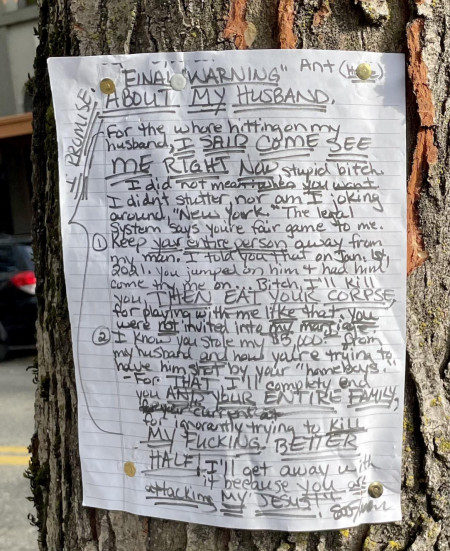 "FINAL "WARNING" Ant
ABOUT MY HUSBAND.
I PROMISE.
For the whore hitting on my
husband, I SAID COME SEE
ME RIGHT NOW stupid bitch.
I did not mean you want
I didn't stutter, nor am I joking
around, "New York." The legal
System says you're fair game to me.
① Keep your entire person away from
my man. I told you that on Jan.
2021. you jumped on him & had him
come try me on... Bitch, I'll kill
you, THEN EAT YOUR CORPSE,
for playing with me like that. you
were not invited into my marriage
② I know you stole my $5,000 from
my husband and how you're trying to
have him shot by your "homeboys."
- For THAT I'll complety end
you AND YOUR ENTIRE FAMILY,
for ignorantly trying to kill
MY FUCKING BETTER
HALF! I'll get away with
it because you are
attacking MY JESUS"